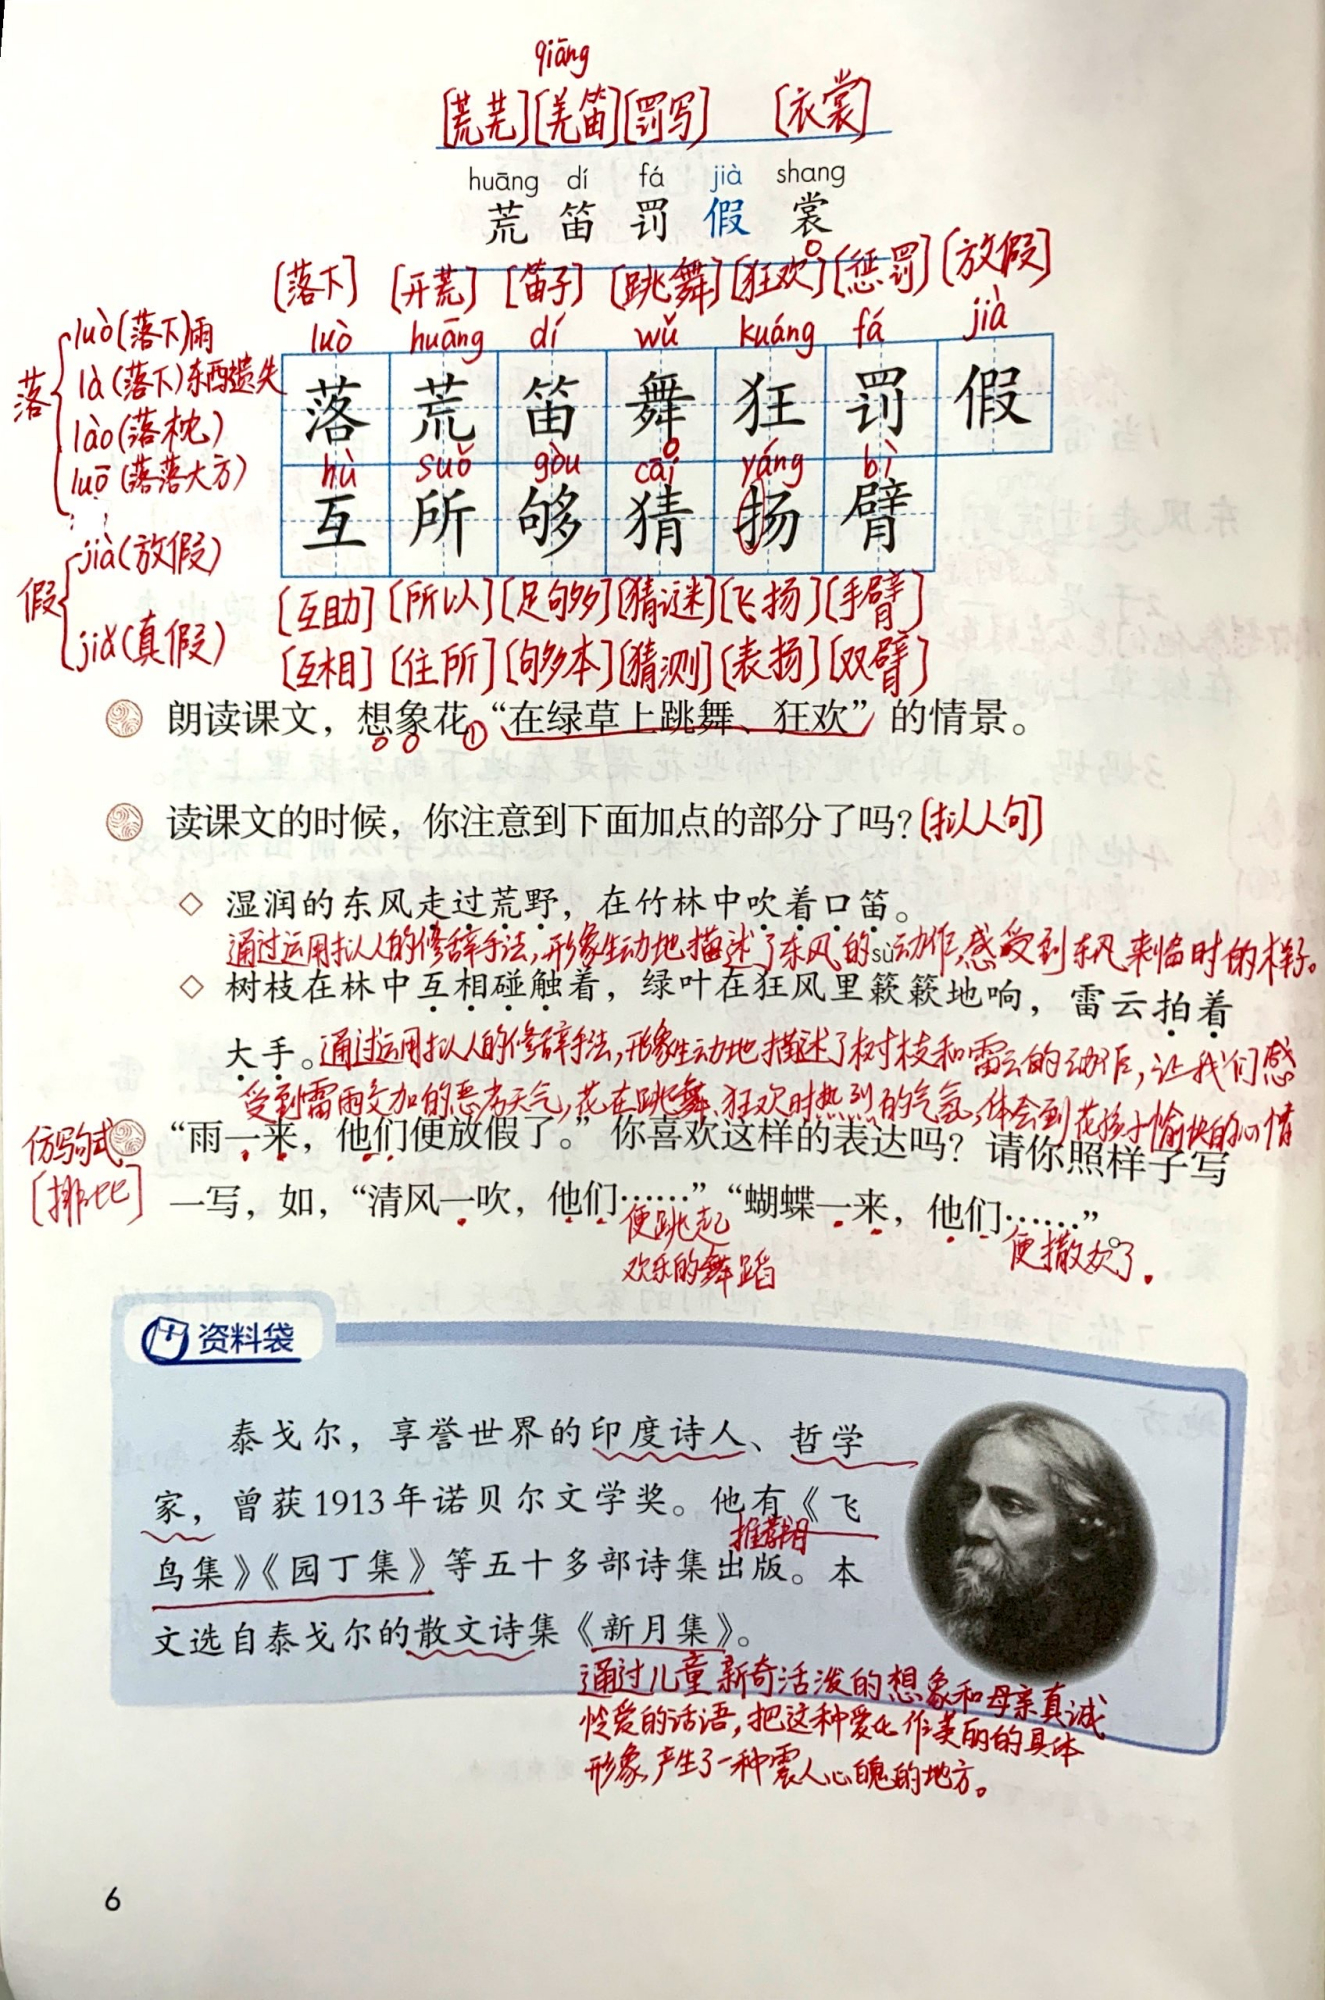 qiāng
[荒芜][羌笛][罚写] [衣裳]
huāng dí fá jià shang
荒 笛 罚 假 裳
[落下] [开荒] [笛子] [跳舞] [狂欢] [惩罚] [放假]
luò huāng dí wǔ kuáng fá jià
落 荒 笛 舞 狂 罚 假
hù suǒ gòu cāi yáng bì
互 所 够 猜 扬 臂
[互助] [所以] [足够] [猜谜] [飞扬] [手臂]
[互相] [住所] [够本] [猜测] [表扬] [双臂]
落
luò(落下)雨
là(落下)东西遗失
lào(落枕)
luō(落落大方)
假
jià(放假)
jiǎ(真假)
朗读课文，想象花①“在绿草上跳舞、狂欢”的情景。
读课文的时候，你注意到下面加点的部分了吗？[拟人句]
◇ 湿润的东风走过荒野，在竹林中吹着口笛。
通过运用拟人的修辞手法，形象生动地描述了东风的动作，感受到东风来临时的样子。
sù
◇ 树枝在林中互相碰触着，绿叶在狂风里簌簌地响，雷云拍着
大手。通过运用拟人的修辞手法，形象生动地描述了树枝和雷云的动作，让我们感
受到雷雨交加的恶劣天气，花在跳舞、狂欢时热烈的气氛，体会到花孩子愉快的心情
仿写句式
[排比]
“雨一来，他们便放假了。”你喜欢这样的表达吗？请你照样子写
一写，如，“清风一吹，他们……”“蝴蝶一来，他们……”。
便跳起
欢乐的舞蹈
便撒欢了.
资料袋
泰戈尔，享誉世界的印度诗人、哲学
家，曾获1913年诺贝尔文学奖。他有《飞
推荐书目
鸟集》《园丁集》等五十多部诗集出版。本
文选自泰戈尔的散文诗集《新月集》。
通过儿童新奇活泼的想象和母亲真诚
怜爱的话语，把这种爱化作美丽的具体
形象，产生了一种震人心魄的地方。
6